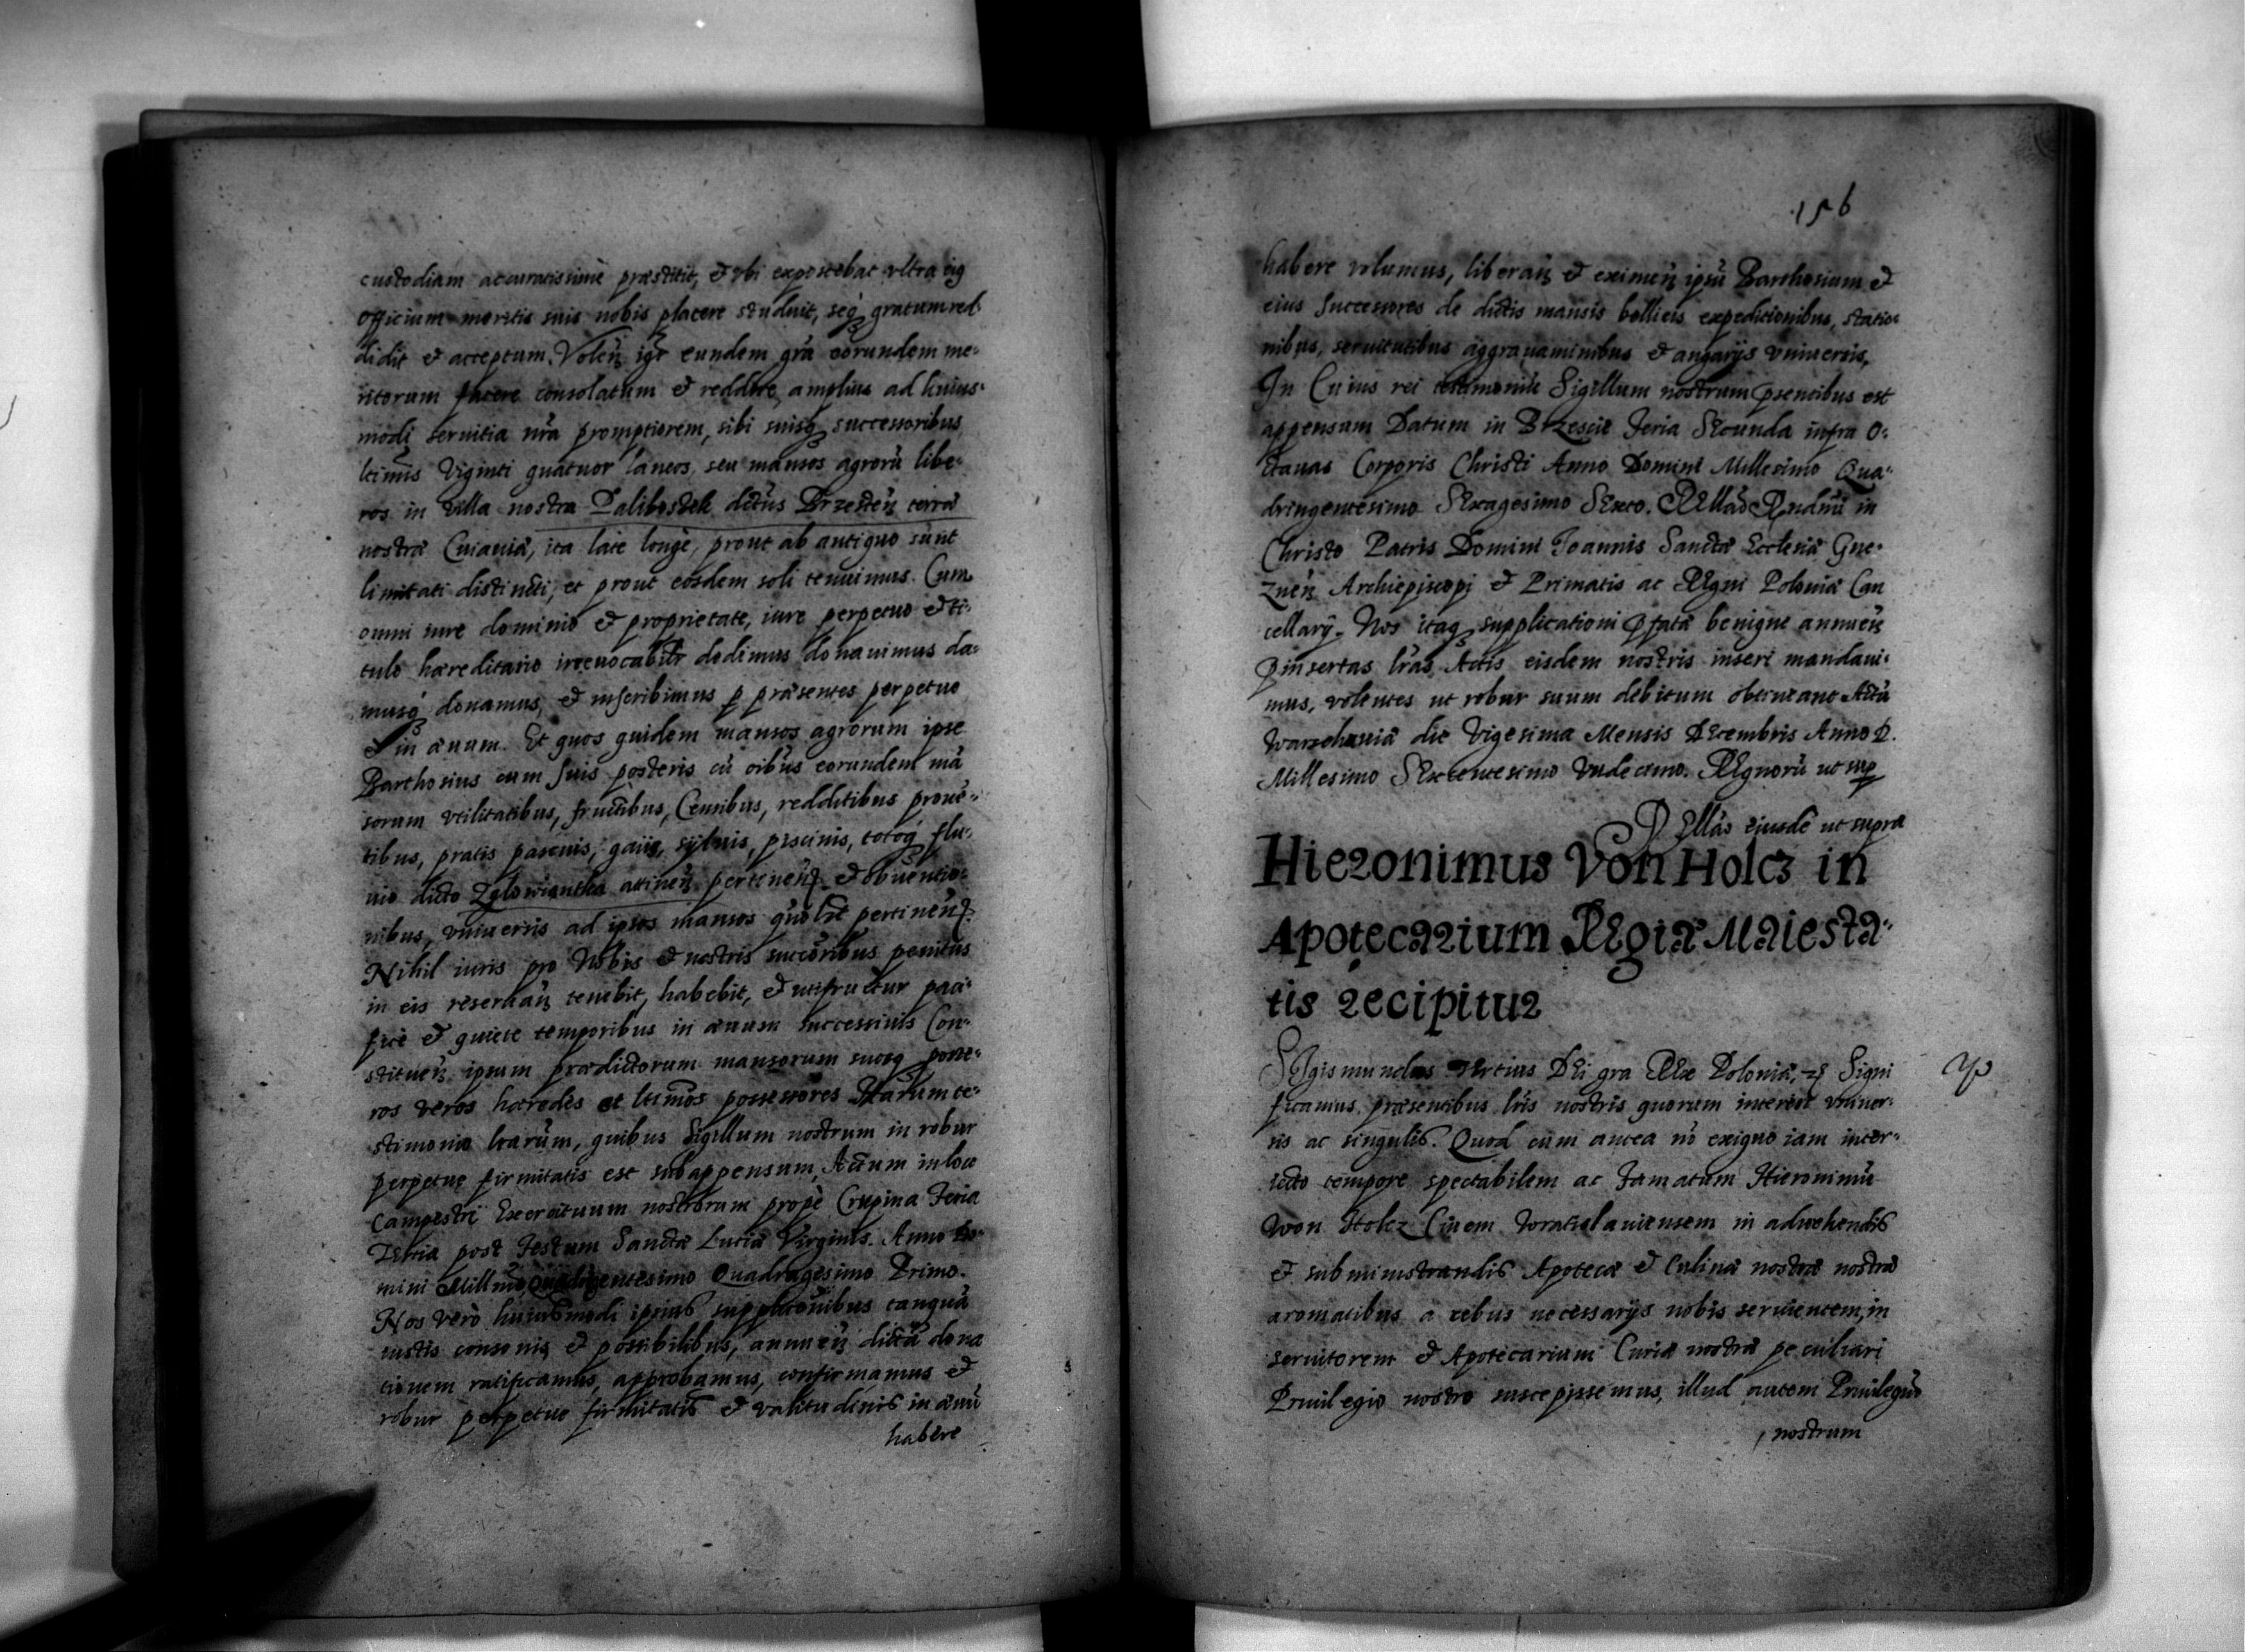 custodiam accuratissime præstitit, & vbi exposcebat vltra eig
officium meritis suis nobis placere studuit, seq gratum red-
didit & acceptum. Volen igr eundem gra eorundem me-
ritorum facere consolatum & reddere amplius ad huius-
modi seruitia nra promptiorem, sibi suisq successoribus
ltimis Viginti quatuor laneos, seu mansos agroru libe-
ros in villa nostra Palibostek dictus Brzesten terræ
nostræ Cuiauiæ, ita late longè, prout ab antiquo sunt
limitati distincti, et prout eosdem soli tenuimus. Cum
omni iure dominio & proprietate, iure perpetuo & ti-
tulo hæreditario irreuocabilr dedimus donauimus da-
musq donamus, & inscribimus p præsentes perpetuo
& in æuum. Et quos quidem mansos agrorum ipse
Barthosius cum suis posteris cu oibus eorundem ma
sorum vtilitatibus, fructibus, Censibus, redditibus proue-
tibus, pratis pascuis, gaiis, syluis, piscinis, totoq flu-
uio dicto Zglowiantka attinen pertinen & obuentio-
nibus, vniuersis ad ipsos mansos quolit pertinen
Nihil iuris pro Nobis & nostris succoribus penitus
in eis reseruan tenebit, habebit, & utifruetur paci-
fice & quiete temporibus in æuum successiuis Con-
stituen ipsum prædictorum mansorum suosq poste-
ros veros hæredes et ltimos possessores Harum te-
stimonio lrarum, quibus Sigillum nostrum in robur
perpetuę firmitatis est subappensum, Actum in loco
Campestri Exercituum nostrorum propè Crupina Feria
Tertia post Festum Sanctæ Luciæ Virginis. Anno Do-
mini Millmo Quadringentesimo Quadragesimo Primo.
Nos verò huiusmodi ipsius supplicōnibus tanquā
iustis consonis & possibilibus, annuen dictā dona
tionem ratificamus, approbamus, confirmamus &
robur perpetuę firmitatis & valitudinis in æuū
habere
156
habere volumus, liberan & eximen ipsū Barthosium &
eius Successores de dictis mansis bellicis expeditionibus, statio-
nibus, seruitutibus aggrauaminibus & angarijs vniuersis,
In Cuius rei testimoniū Sigillum nostrum psentibus est
appensum Datum in Brzescie Feria Secunda infra O-
ctauas Corporis Christi Anno Domini Millesimo Qua-
dringentesimo Sexagesimo Sexto. Rellāo Rndmi in
Christo Patris Domini Joannis Sanctæ Ecclesiæ Gne-
znen Archiepiscopi & Primatis ac Regni Poloniæ Can
cellarij. Nos itaq supplicationi pfatæ benigne annuen
pinsertas lras Actis eisdem nostris inseri mandaui-
mus, volentes ut robur suum debitum obtineant Actū
Warschauiæ die Vigesima Mensis Decembris Anno D.
Millesimo Sexcentesimo Vndecimo. Regnorū ut sup
Rellāo eiusdē ut supra
Hieronimus Von Holcz in
Apotecarium Regiæ Maiesta-
tis recipitur
Sigismundus Tertius Dei gra Rex Poloniæ, Signi
ficamus præsentibus lris nostris quorum interest vniuer-
sis ac singulis. Quod cum antea nō exiguo iam inter-
iecto tempore spectabilem ac Famatum Hieronimū
Won Holcz Ciuem Wratislauiensem in aduehendis
& subministrandis Apotecæ & Culinæ nostræ nostræ
aromatibus a rebus necessarijs nobis seruientem, in
seruitorem & Apotecarium Curiæ nostræ peculiari
Priuilegio nostro suscepissemus, illud autem Priuilegiū
nostrum